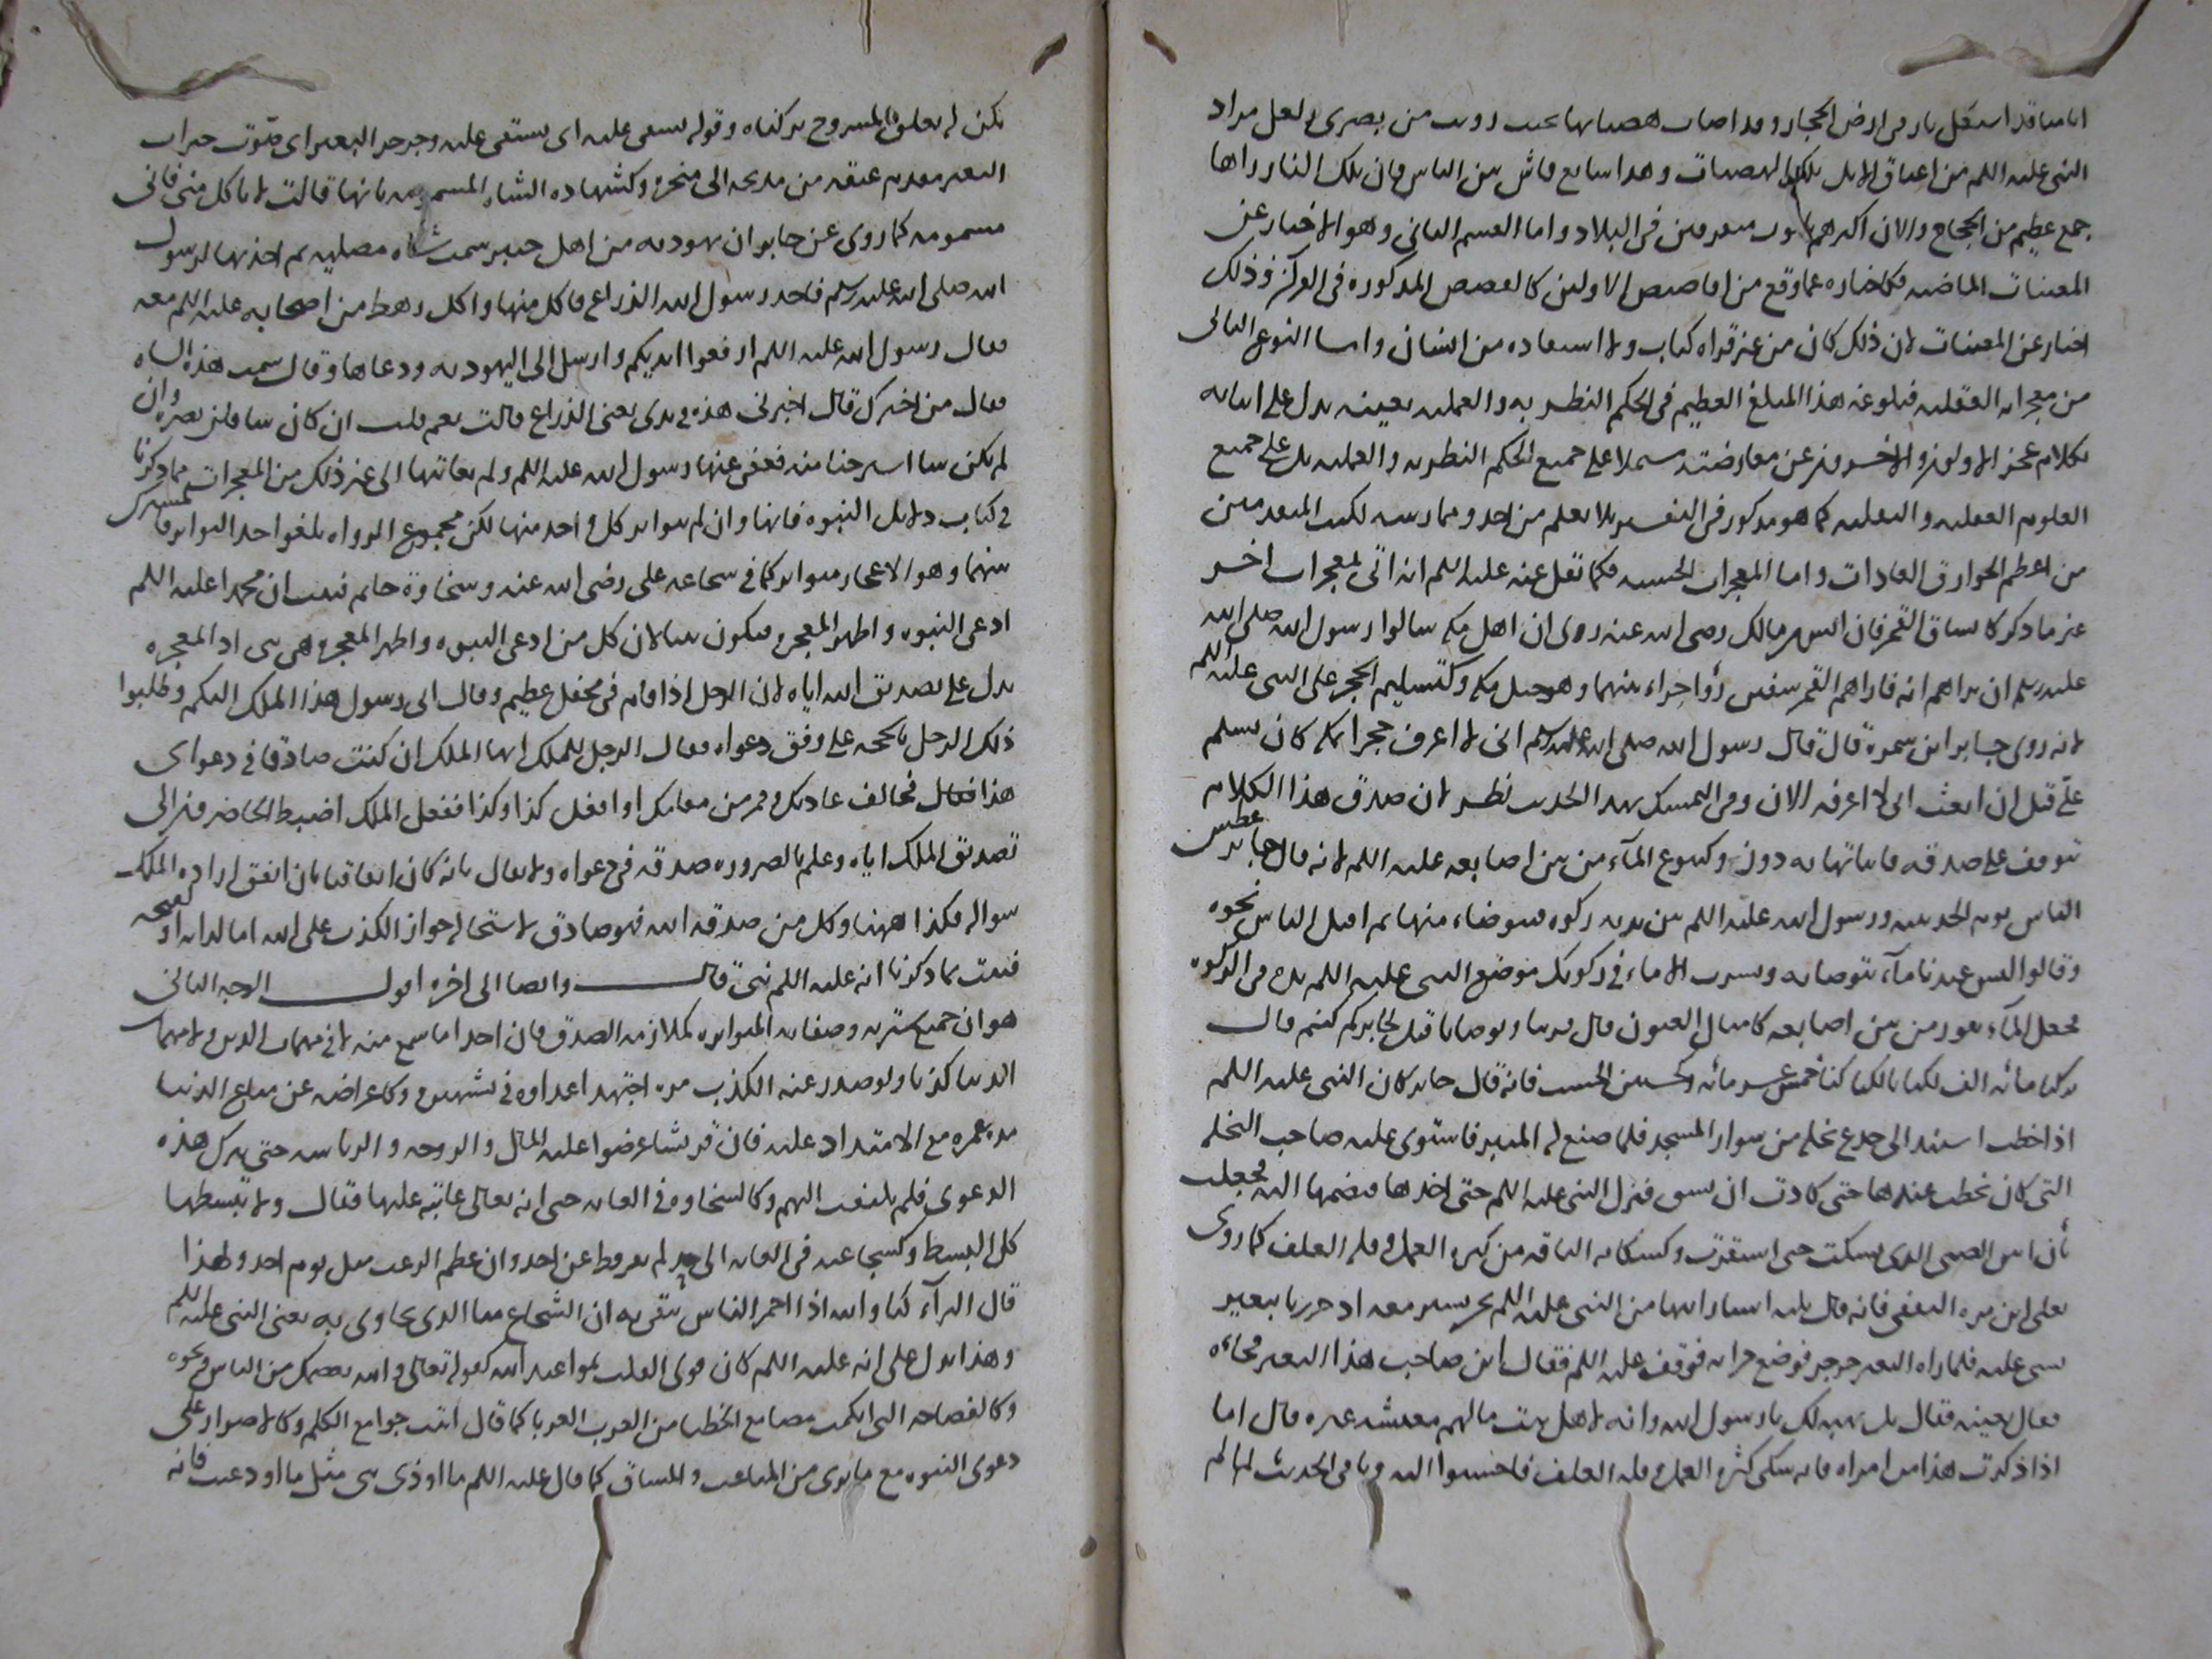 اىاما قد استقل نار فى ارض الحجاز وقد اضات هضباتها بحيث رويت من بصرى ولعل مراد
النبى عليه اللم من اعناق الابل تلك الهضبات وهدا سايع فاش بين الناس فان تلك النار راها
جمع عظيم من الحجاج والان اكثرهم متفرقين فى البلاد واما القسم الثانى وهو الاخبار عن
المغيبات الماضيه فكاخباره عما وقع من اقاصيص الاولين كالقصص المذكوره فى القرآن وذلك
اخبار عن المغيبات لان ذلك كان من غير قراه كتاب ولا استفاده من انسان واما النوع الثانى
من معجزاته العقليه فبلوغه هذا المبلغ العظيم فى الحكم النظريه والعمليه بغته يدل على اتيانه
بكلام عجز الاولون والاخرون عن معارضته مشتملا على جميع الحكم النظريه والعمليه بل على جميع
العلوم العقليه والنقليه كما هو مذكور فى التفسير بلا تعلم من احد وممارسه لكتب المتقدمين
من اعظم الخوارق العادات واما المعجزات الحسيه فكما نقل عنه عليه اللم انه اتى بمعجزات اخر
غير ما ذكر كانشقاق القمر فان انس بن مالك رضى الله عنه روى ان اهل مكه سالوا رسول الله صلى الله
عليه وسلم ان يراهم ايه فاراهم القمر شقين رأوا حراء بينهما وهو جبل مكه وكتسليم الحجر على النبى عليه اللم
لانه روى جابر ابن سمرة قال قال رسول الله صلى الله عليه وسلم انى لاعرف حجرا بمكه كان يسلم
علىّ قبل ان ابعث انى لاعرفه الان وفى التمسك بهدا الحديث نظر لان صدق هذا الكلام
يتوقف على صدقه فاثباتها به دور وكنبوع المآء من بين اصابعه عليه اللم لانه قال جابر عطش
الناس يوم الحديبيه ورسول الله عليه اللم بين يديه ركوه فتوضاء منها ثم اقبل الناس نحوه
وقالوا ليس عندنا مآء نتوضا به ونشرب الا ماء فى ركوتك فوضع النبى عليه اللم يده فى الركوه
فجعل المآء يفور من بين اصابعه كامثال العيون قال فشربنا وتوضانا قيل لجابر كم كنتم قال
لو كنا مائه الف لكفانا كنا خمس عشر مائه وكحنين الخشب فانه قال جابر كان النبى عليه اللم
اذا خطب استند الى جدع نخله من سوار المسجد فلما صنع له المنبر فاستوى عليه صاحت النخله
التى كان يخطب عندها حتى كادت ان تنشق فنزل النبى عليه اللم حتى اخدها فضمها اليه فجعلت
تأن انين الصبى الذى يسكت حتى استقرت وكشكايه الناقه من كثره العمل وقله العلف كما روى
يعلى ابن مره الثقفى فانه قال ثلثه اشيا رايتها من النبى عليه اللم نحن نسير معه اد مررنا ببعير
يسنى عليه فلما راه البعير جرجر فوضع جرانه فوقف عليه اللم فقال اين صاحب هذا البعير فجاءه
فقال بعنيه فقال بل نهبه لك يا رسول الله وانه لاهل بيت ما لهم معيشه غيره قال اما
اذا ذكرت هذا من امره فانه شكى كثره العمل وقله العلف فاحسنوا اليه وباقى الحديث لما لم
يكن له تعلق بالمشروح تركناه وقوله يسقى عليه اى يستقى عليه وجرجر البعير اى صوت جران
البعير مقدم عنقه من مذبحه الى منحره وكشهاده الشاه المسمومه بانها قالت لا تاكل منى فانى
مسمومه كما روى عن جابر ان يهوديه من اهل خيبر سمت شاه مصليه ثم اهدتها لرسول
الله صلى الله عليه وسلم فاخذ رسول الله الذراع فاكل منها واكل رهط من اصحابه عليه اللم معه
فقال رسول الله عليه اللم ارفعوا ايديكم وارسل الى اليهوديه ودعاها وقال سممت هذه الشاه
فقال من اخبرك قال اخبرنى هذه فى يدى يعنى الذراع قالت نعم قلت ان كان نبيا فلن يضره وان
لم يكن نبيا استرحنا منه فعفى عنها رسول الله عليه اللم ولم يعاتبها الى غير ذلك من المعجرات مما ذكرنا
فى كتاب دلايل النبوه فانها وان لم يتواتر كل واحد منها لكن مجموع الرواه بلغوا حد التواتر فالمشترك
بينهما وهو الاعجاز متواتر كما فى شجاعه على رضى الله عنه وسخاوة حاتم فثبت ان محمدا عليه اللم
ادعى النبوه واظهر المعجزه فيكون نبيا لان كل من ادعى النبوه واظهر المعجزه فهو نبى اذ المعجزه
يدل على تصديق الله اياه لان الرجل اذا قام فى محفل عظيم وقال انى رسول هذا الملك اليكم وطلبوا
ذلك الرجل بالحجه على وفق دعواه فقال الرجل للملك ايها الملك ان كنت صادقا فى دعواى
هذا فقال فخالف عادتك وقم من مقامك او افعل كذا وكذا ففعل الملك اضطر الحاضرون الى
تصديق الملك اياه وعلم بالضروره صدقه فى دعواه ولا يقال بانه كان اتفاقيا بان اتفق اراده الملك
سواله فكذا ههنا وكل من صدقه الله فهو صادق لاستحاله جواز الكذب على الله اما لذاته او لقبحه
فثبت بما ذكرنا انه عليه اللم نبىّ قال وايضا الى اخره اقول الوجه الثانى
هو ان جميع سيرته وصفاته المتواتره كملازمه الصدق فان احدا ما سمع منه لا فى مهمات الدين ولا مهمات
الدنيا كذبا ولو صدر عنه الكذب مره اجتهد اعداوه فى تشهيره وكاعراضه عن متاع الدنيا
مده عمره مع الاقتدار عليه فان قريشا عرضوا عليه المال والزوجه والرياسه حتى يترك هذه
الدعوى فلم يلتفت اليهم وكالسخاوه فى الغايه حتى انه تعالى عاتبه عليها فقال ولا تبسطها
كل البسط وكشجاعته فى الغايه الى حد لم يفر قط عن احد وان عظم الرعب مثل يوم احد ولهذا
قال البرآء كنا والله اذا احمر الباس نتقى به ان الشجاع منا الذى يحاوى به يعنى النبى عليه اللم
وهذا يدل على انه عليه اللم كان قوى القلب بمواعيد الله كقوله تعالى والله يعصمك من الناس ونحوه
وكالفصاحه التى ابكمت مصاقع الخطبا من العرب العربا كما قال اتيت جوامع الكلم وكالاصرار على
دعوى النبوه مع ما يرى من المتاعب والمشاق كما قال عليه اللم ما اوذى نبى مثل ما اوذيت فانه